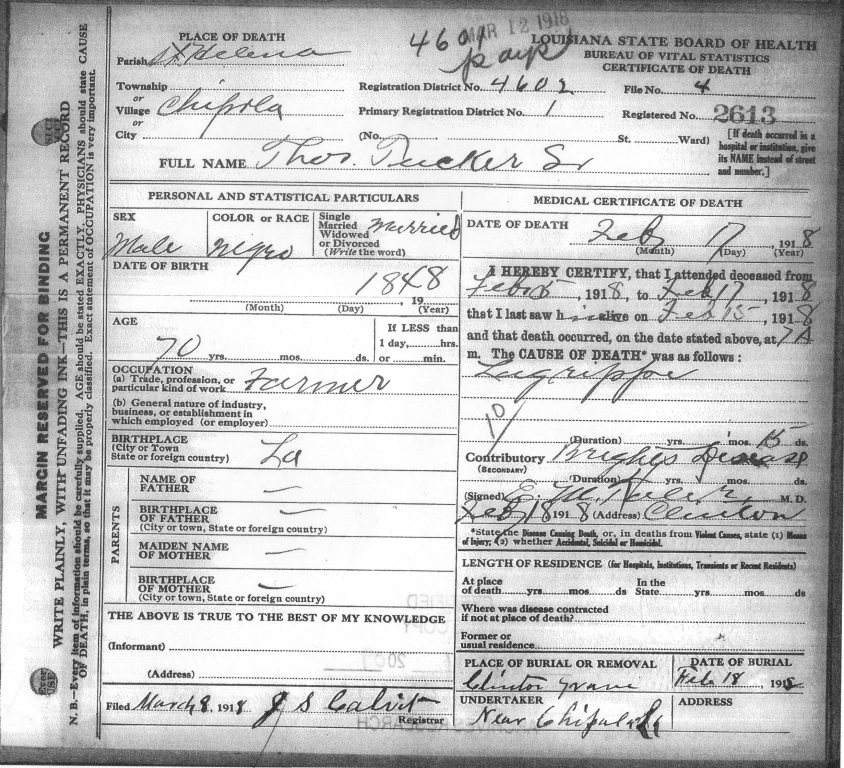 MAR 12 1918
PLACE OF DEATH
4601
LOUISIANA STATE BOARD OF HEALTH
Parish St Helena
BUREAU OF VITAL STATISTICS
CERTIFICATE OF DEATH
Township
or
Village Chipola
or
City
Registration District No. 4602 File No. 4
Primary Registration District No. 1 Registered No. 2613
(No. St. Ward)
[If death occurred in a
hospital or institution, give
its NAME instead of street
and number.]
FULL NAME Thos. Tucker Sr
MARGIN RESERVED FOR BINDING
WRITE PLAINLY, WITH UNFADING INK—THIS IS A PERMANENT RECORD
N. B.—Every item of information should be carefully supplied. AGE should be stated EXACTLY. PHYSICIANS should state CAUSE
OF DEATH, in plain terms, so that it may be properly classified. Exact statement of OCCUPATION is very important.
PERSONAL AND STATISTICAL PARTICULARS
SEX
Male
COLOR or RACE
negro
Single
Married
Widowed
or Divorced
(Write the word)
Married
DATE OF BIRTH
1848
, 19
(Month) (Day) (Year)
AGE
70 yrs. mos. ds.
If LESS than
1 day, hrs.
or min.
OCCUPATION
(a) Trade, profession, or
particular kind of work Farmer
(b) General nature of industry,
business, or establishment in
which employed (or employer)
BIRTHPLACE
(City or Town
State or foreign country) La
PARENTS
NAME OF
FATHER —
BIRTHPLACE
OF FATHER —
(City or town, State or foreign country)
MAIDEN NAME
OF MOTHER —
BIRTHPLACE
OF MOTHER —
(City or town, State or foreign country)
THE ABOVE IS TRUE TO THE BEST OF MY KNOWLEDGE
(Informant)
(Address)
Filed March 8, 1918 J S Calvit
Registrar
MEDICAL CERTIFICATE OF DEATH
DATE OF DEATH Feb 17, 1918
(Month) (Day) (Year)
I HEREBY CERTIFY, that I attended deceased from
Feb 5, 1918, to Feb 17, 1918
that I last saw him alive on Feb 15, 1918
and that death occurred, on the date stated above, at 7 A
m. The CAUSE OF DEATH* was as follows:
Lagrippe
10
(Duration) yrs. mos. 15 ds.
Contributory Brights Disease
(SECONDARY)
(Duration) yrs. mos. ds.
(Signed) M. D.
Feb 18 1918 (Address) Clinton
*State the Disease Causing Death, or, in deaths from Violent Causes, state (1) Means
of Injury; (2) whether Accidental, Suicidal or Homicidal.
LENGTH OF RESIDENCE (for Hospitals, Institutions, Transients or Recent Residents)
At place
of death yrs. mos. ds
In the
State yrs. mos. ds
Where was disease contracted
if not at place of death?
Former or
usual residence
PLACE OF BURIAL OR REMOVAL
Clinton
DATE OF BURIAL
Feb 18, 1918
UNDERTAKER
Near Chipola La
ADDRESS